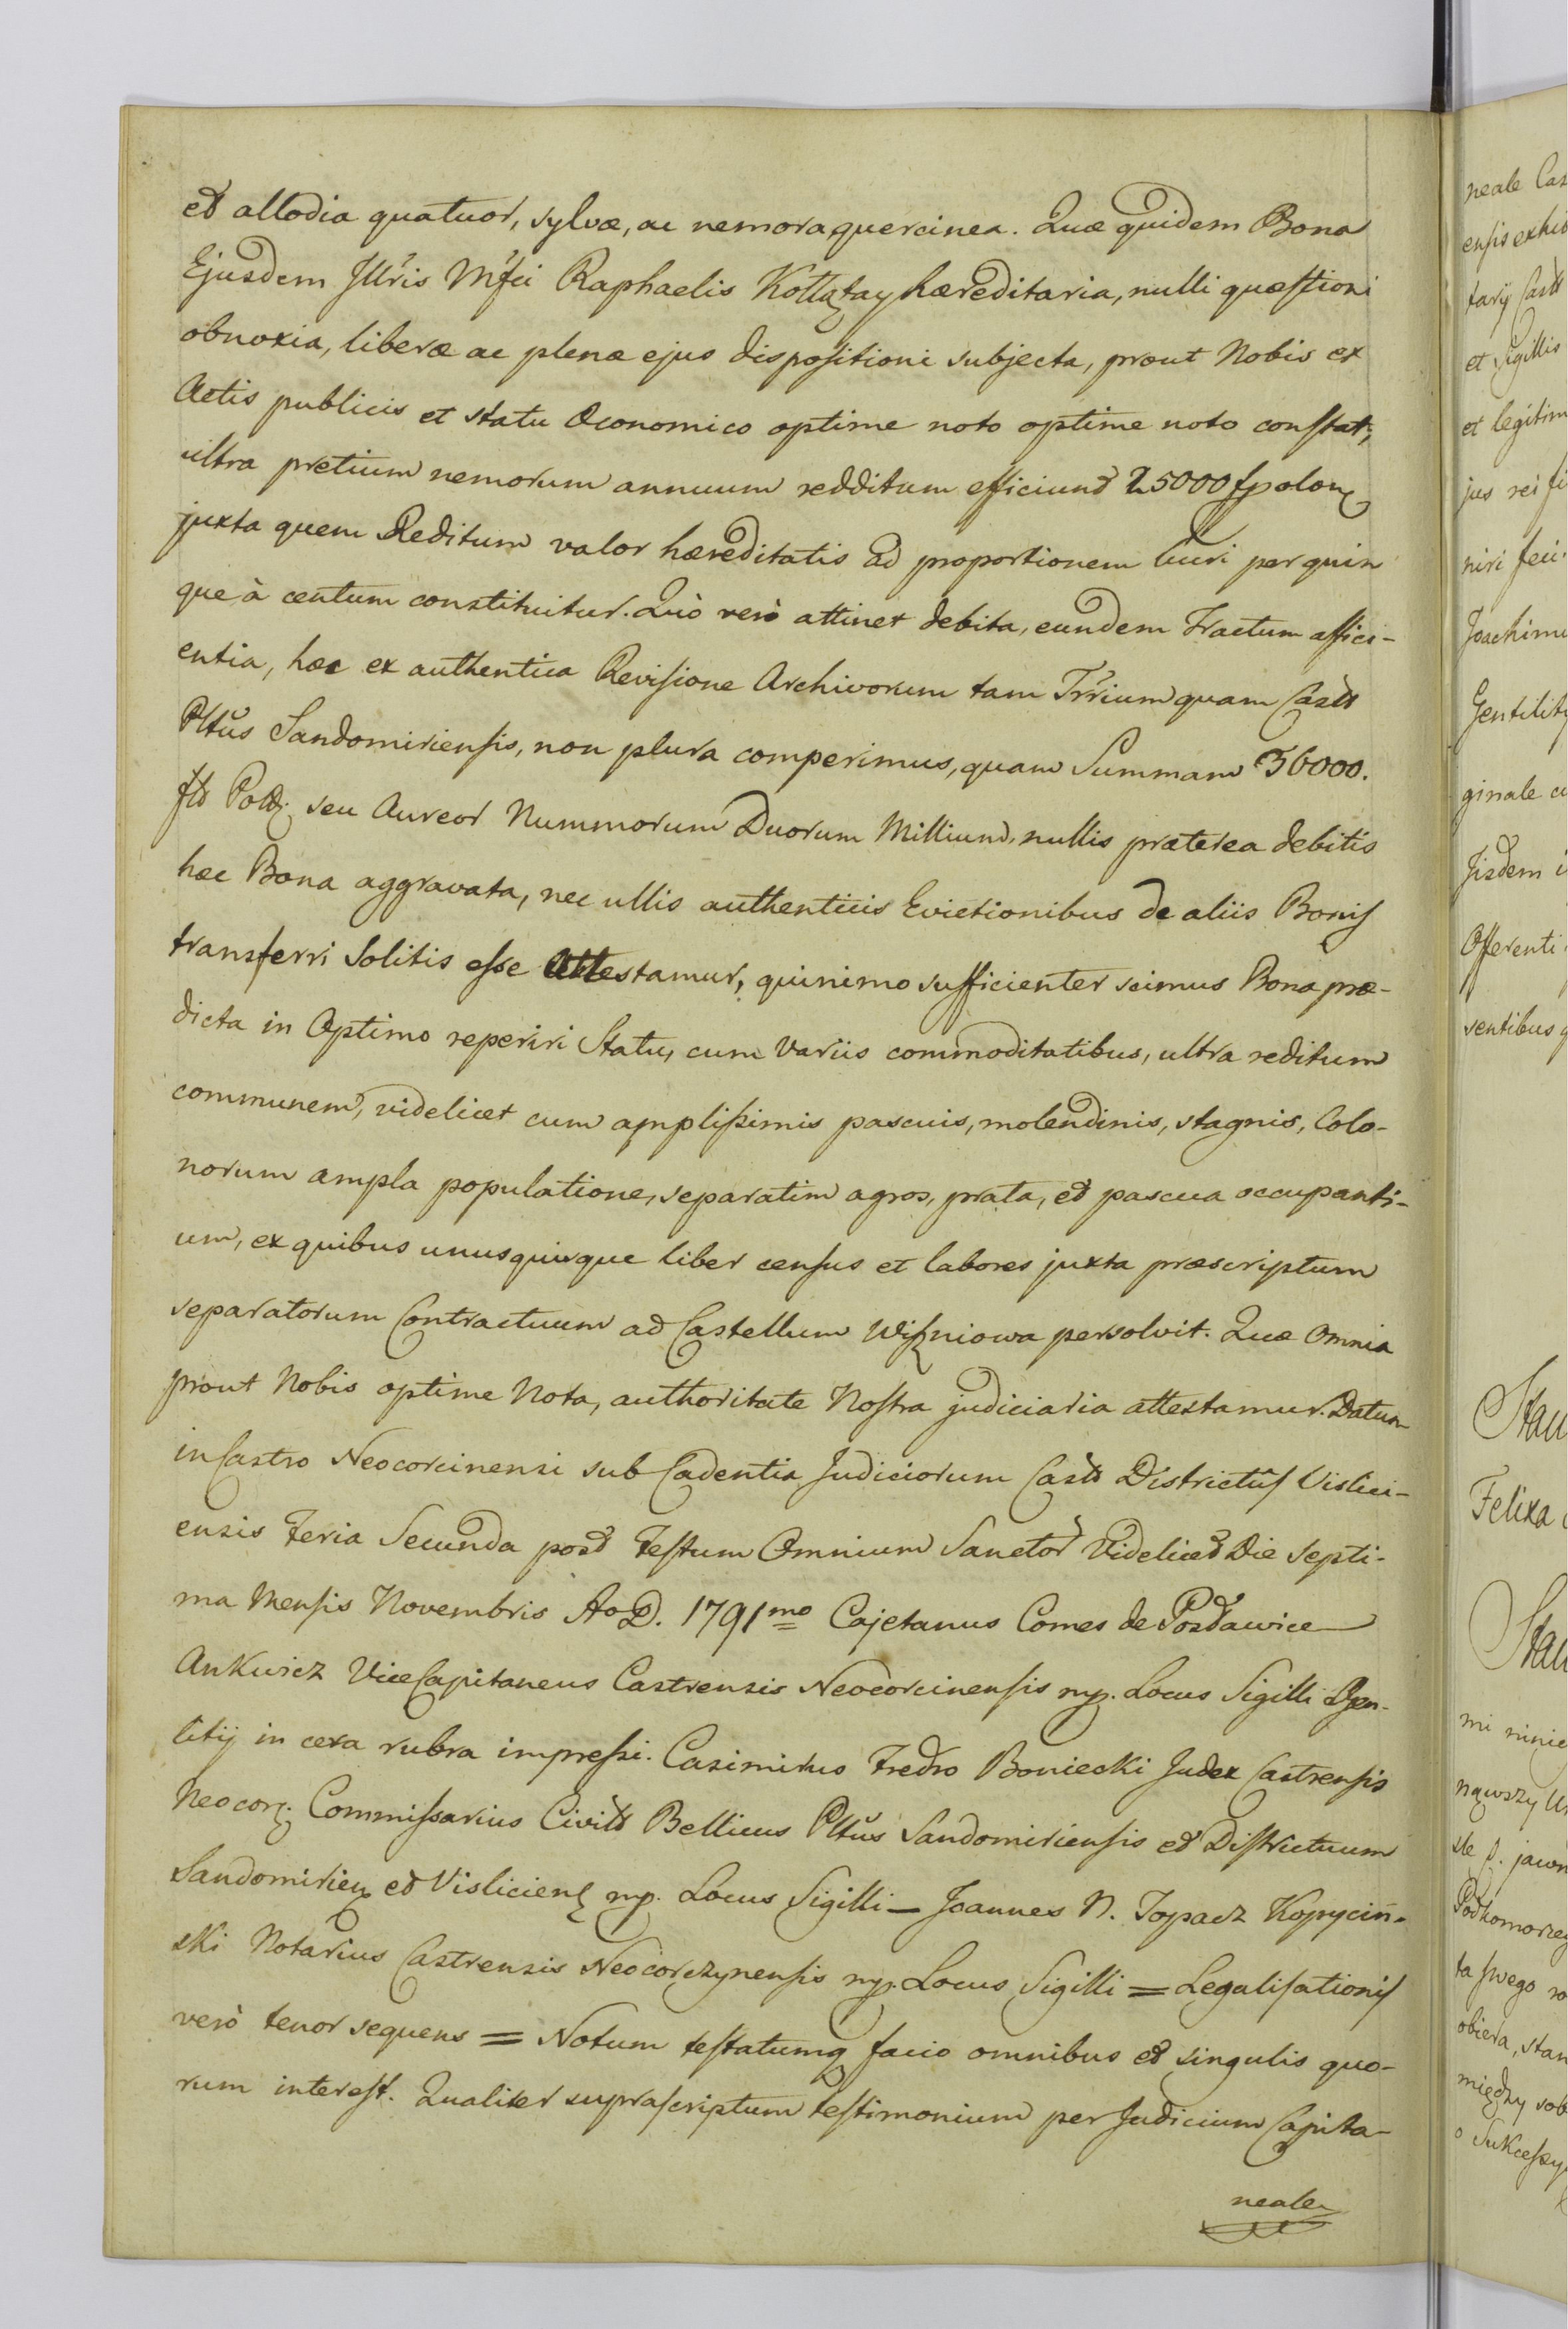 et allodia quatuor, sylvæ, ac nemora quercinea. Quæ quidem Bona
Ejusdem Jllris Mfci Raphaelis Kołłątay hæreditaria, nulli quæstioni
obnoxia, liberæ ac plenæ ejus dispositioni subjecta, prout Nobis ex
Actis publicis et statu Œconomico optime noto optime noto constat,
ultra pretium nemorum annuum redditum efficiunt 25000 fpolon
juxta quem Reditum valor hæreditatis ad proportionem lucri per quin
que à centum constituitur. Quò verò attinet debita, eundem Tractum affici-
entia, hæc ex authentica Revisione Archivorum tam Trrium quam Castr
Pltus Sandomiriensis, non plura comperimus, quam Summam 36000.
flr Poll. seu Aureor Nummorum Duorum Millium, nullis præterea debitis
hæc Bona aggravata, nec ullis authenticis Evictionibus de aliis Bonis
transferri solitis esse Attestamur, quinimo sufficienter scimus Bona præ-
dicta in Optimo reperiri Statu, cum variis commoditatibus, ultra reditum
communem, videlicet cum amplissimis pascuis, molendinis, stagnis, Colo-
norum ampla populatione, separatim agros, prata, et pascua occupanti-
um, ex quibus unusquisque liber census et labores juxta præscriptum
separatorum Contractuum ad Castellum Wiszniowa persolvit. Quæ Omnia
prout Nobis optime Nota, authoritate Nostra judiciaria attestamur. Datum
in Castro Neocorcinensi sub Cadentia Judiciorum Castr Districtûs Vislici-
ensis Feria Secunda post Festum Omnium Sanctor Videlicet Die Septi-
ma Mensis Novembris Ao D. 1791mo Cajetanus Comes de Posławice
Ankwicz ViceCapitaneus Castrensis Neocorcinensis mp. Locus Sigilli Gen-
litij in cera rubra impressi. Casimirus Fredro Boniecki Judex Castrensis
Neocorc. Commissarius Civilo Bellicus Pltus Sandomiriensis et Districtuum
Sandomirien et Vislicien mp. Locus Sigilli — Joannes N. Topacz Kopyciń-
ski Notarius Castrensis Neocorczynensis mp. Locus Sigilli = Legalisationis
verò tenor sequens = Notum testatumq facio omnibus et singulis quo-
rum interest. Qualiter suprascriptum testimonium per Judicium Capita-
neale
neale Cas
ensis exhib
tarij Castr
et Sigillis
et legitim
jus rei fi
niri feci
Joachimu
Gentility
ginale
Jisdem i
Offerenti
sentibus q
Stan
Felixa
Stan
mi ninie
nąwszy
ste p. jawn
Podkomorzeg
ta swego
obiera, stan
między sob
o Sukcessy